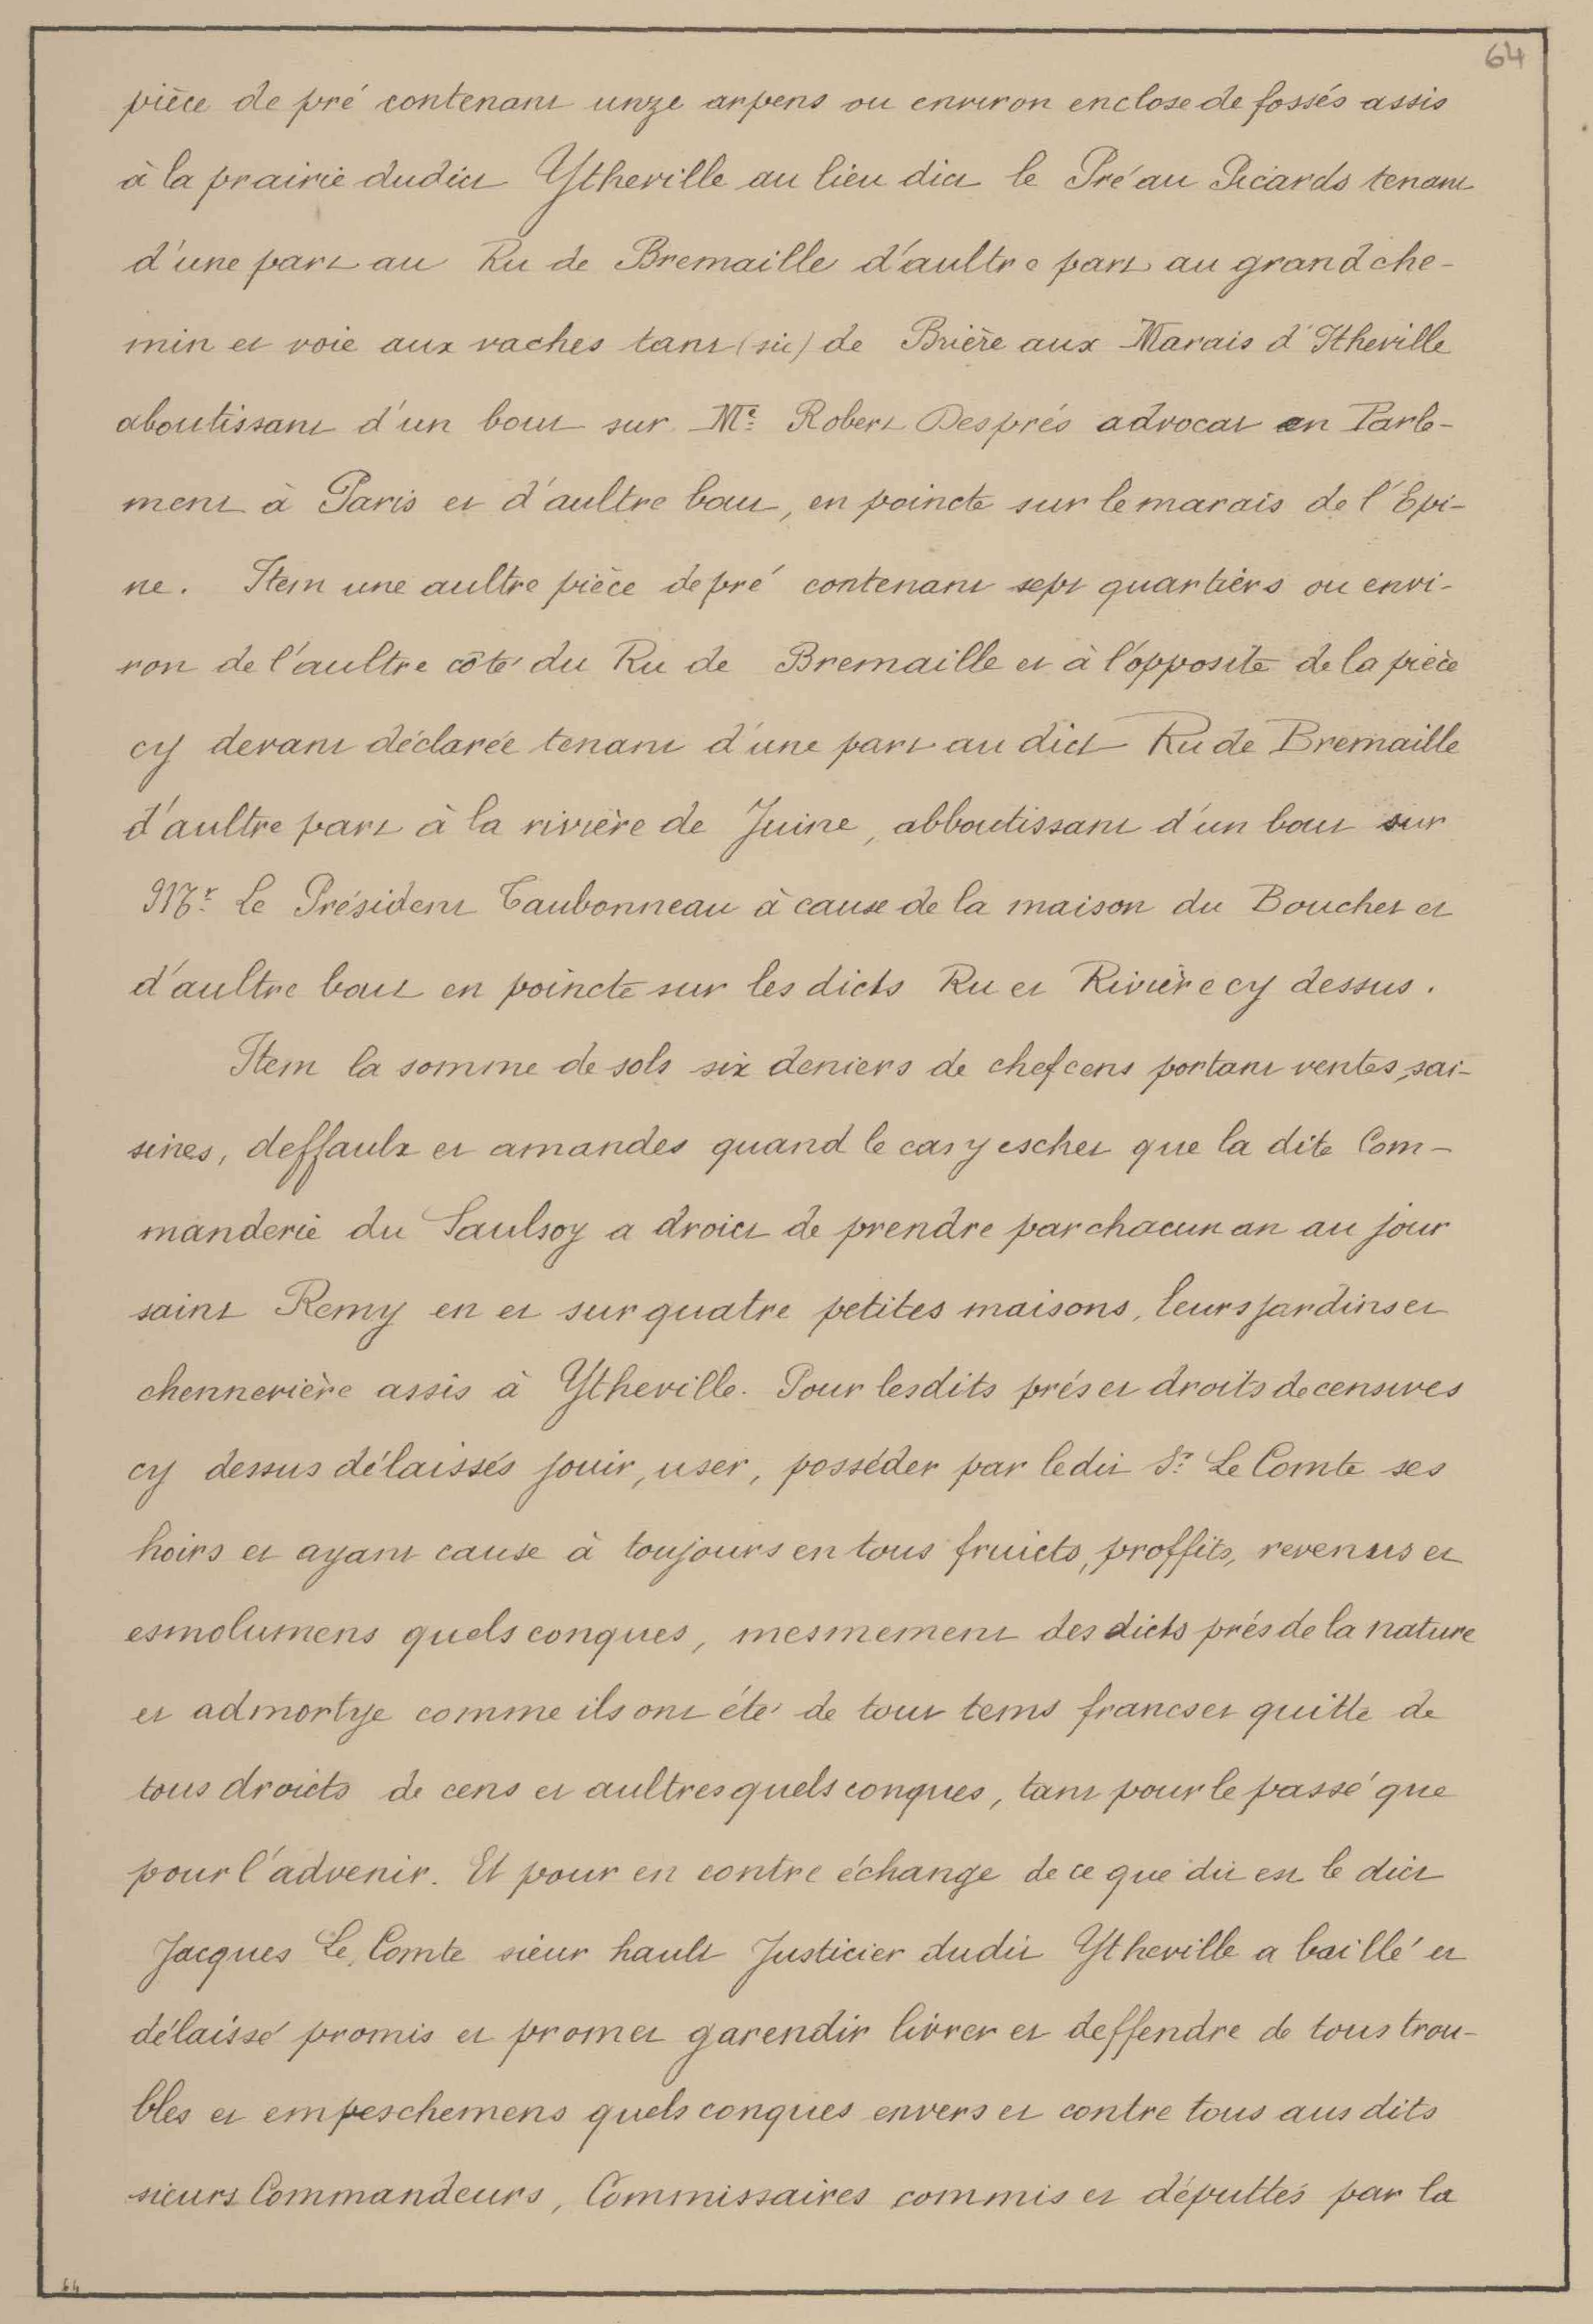 64
pièce de pré contenant unze arpens ou environ enclose de fossés assis
à la prairie dudict Ytheville au lieu dict le Pré au Picards tenant
d'une part au Ru de Bremaille d'aultre part au grand che-
min et voie aux vaches tant (sic) de Brière aux Marais d'Itheville
aboutissant d'un bout sur Me Robert Després advocat en Parle-
ment à Paris et d'aultre bout, en poincte sur le marais de l'Epi-
ne. Item une aultre pièce de pré contenant sept quartiers ou envi-
ron de l'aultre côté du Ru de Bremaille et à l'opposite de la pièce
cy devant déclarée tenant d'une part au dict Ru de Bremaille
d'aultre part à la rivière de Juine, abboutissant d'un bout sur
Mr Le Président Taubonneau à cause de la maison du Bouchet et
d'aultre bout en poincte sur les dicts Ru et Rivière cy dessus.
Item la somme de sols six deniers de chef cens portant ventes, sai-
sines, deffaulx et amandes quand le cas y eschet que la dite Com-
manderie du Saulsoy a droict de prendre par chacun an au jour
saint Remy en et sur quatre petites maisons, leurs jardins et
chennevière assis à Ytheville. Pour lesdits prés et droits de censives
cy dessus délaissés jouir, user, posséder par ledit Sr Le Comte ses
hoirs et ayant cause à toujours en tous fruicts, proffits, revenus et
esmolumens quels conques, mesmement des dicts prés de la nature
et admortye comme ils ont été de tout tems francs et quitte de
tous droicts de cens et aultres quels conques, tant pour le passé que
pour l'advenir. Et pour en contre échange de ce que dit est le dict
Jacques Le Comte sieur hault Justicier dudit Ytheville a baillé et
délaissé promis et promet garendir livrer et deffendre de tous trou-
bles et empeschemens quels conques envers et contre tous aus dits
sieurs Commandeurs, Commissaires commis et députtés par la
64